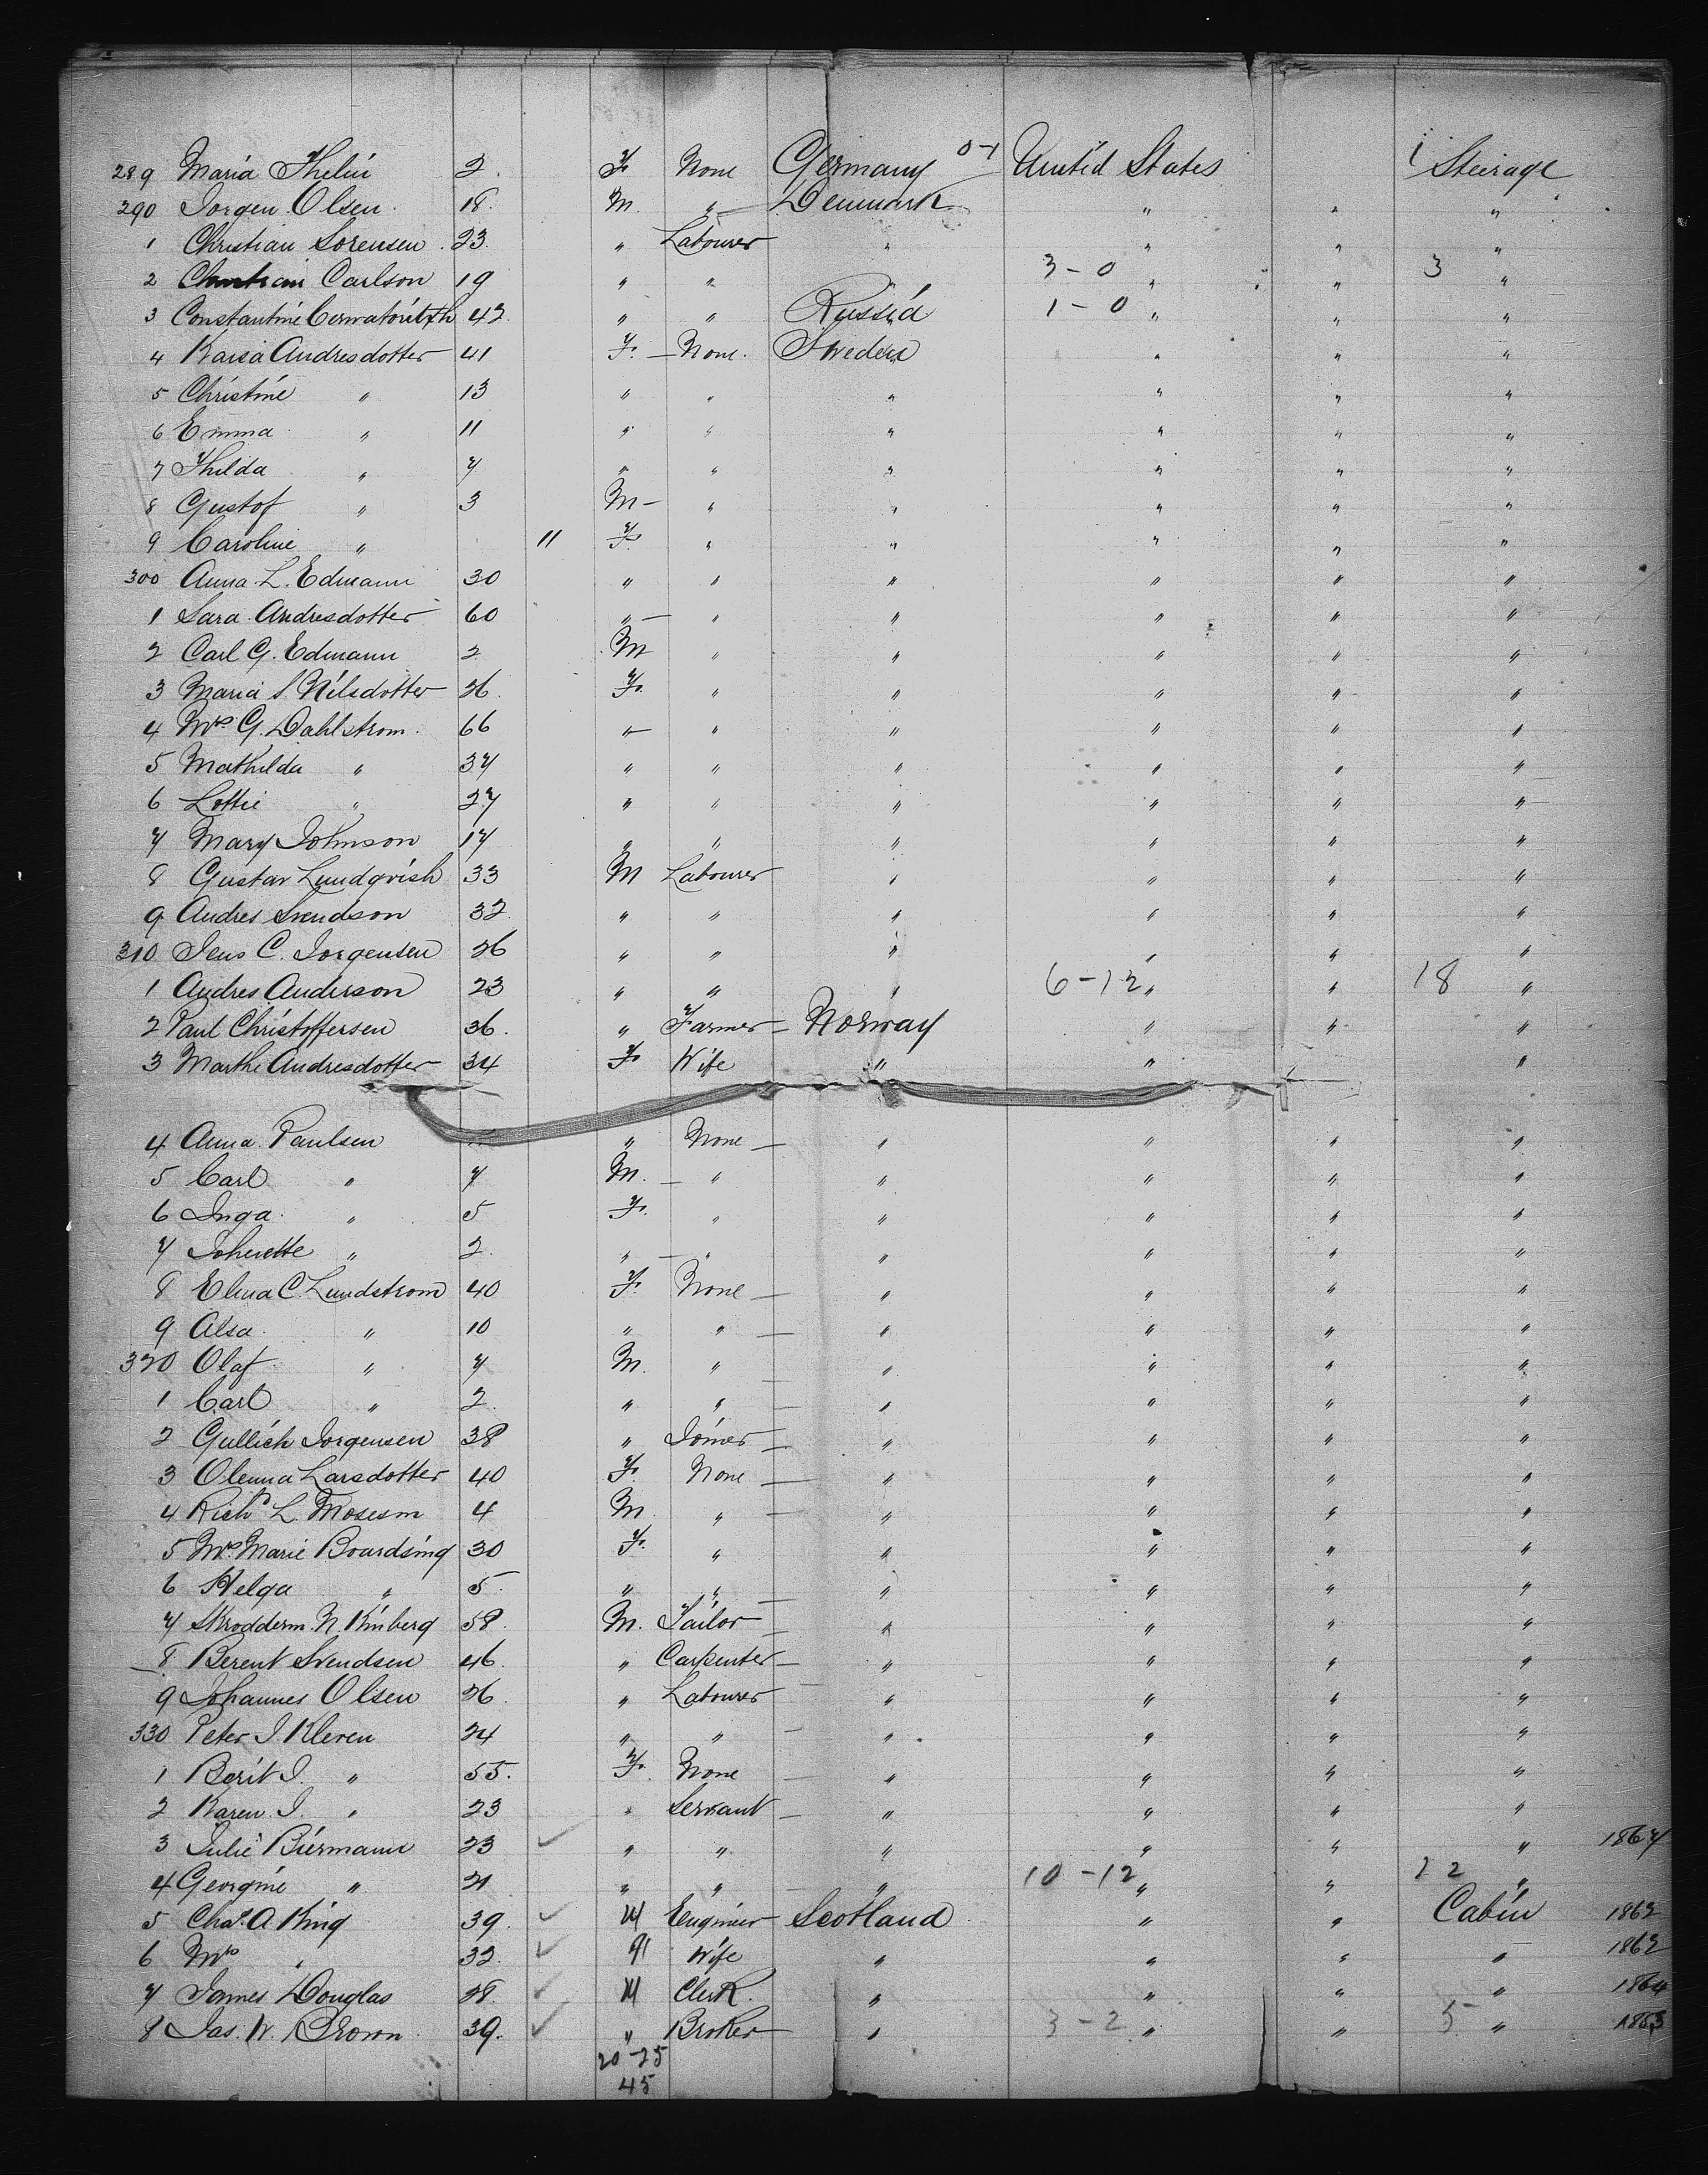 289 Maria Thelin 2. F. None Germany 0-1 United States 1 Steerage
290 Jorgen Olsen 18. M. " Denmark " " "
1 Christian Sorensen 23. " Labourer " " " "
2 Carlson 19 " " 3-0 " " 3 "
3 Constantine 42 " " Russia 1-0 " " "
4 Karsa Andresdotter 41 F. None. Sweden " " "
5 Christine " 13 " " " " " "
6 Emma " 11 " " " " " "
7 Thilda " 7 " " " " " "
8 Gustof " 3 M " " " " "
9 Caroline " 11 F. " " " " "
300 Anna L. Edmann 30 " " " " " "
1 Sara Andresdotter 60 " " " " " "
2 Carl G. Edmann 2 M " " " " "
3 Maria S. Nilsdotter 26. F. " " " " "
4 Mrs G. Dahlstrom. 66 " " " " " "
5 Mathilda " 37 " " " " " "
6 Lottie " 27 " " " " " "
7 Mary Johnson 17 " " " " " "
8 Gustav Lundqvish 33 M Labourer " " " "
9 Andres Svendson 32. " " " " " "
310 Jens C. Jorgensen 26 " " " " " "
1 Andres Anderson 23 " " " 6-12 " " 18 "
2 Paul Christoffersen 36. " Farmer Norway " " "
3 Marthe Andresdotter 34 F. Wife " " "
4 Anna Paulsen " None " " " "
5 Carl " 7 M. " " " " "
6 Inga " 5 F. " " " " "
7 Johnette " 2. " " " " " "
8 Elina C. Lundstrom 40 F. None " " " "
9 Alsa " 10 " " " " " "
320 Olaf " 7 M. " " " " "
1 Carl " 2. " " " " " "
2 Gullich Jorgensen 38 " Joiner " " " "
3 Olenna Larsdotter 40 F. None " " " "
4 Richd L. Mosesm 4 M. " " " " "
5 Mrs. Marie Boardsing 30 F. " " " " "
6 Helga " 5. " " " " " "
7 Skrodderm. N. Kinberg 58. M. Tailor " " " "
8 Berent Svendsen 46. " Carpenter " " " "
9 Johannes Olsen 26. " Labourer " " " "
330 Peter J. Kleven 24 " " " " " "
1 Berit J. " 55. F. None " " " "
2 Karen J. " 23 " Servant " " " "
3 Julie Biermann 23 ✓ " " " " " " 1867
4 Georgine " 21 " " " 10-12 " " 22 "
5 Chas. A. King 39. ✓ M Engineer Scotland " " Cabin 1862
6 Mrs " 32. ✓ F Wife " " " " 1862
7 James Douglas 28. ✓ M Clerk. " " " " 1864
8 Jas. W. Brown 39. ✓ " Broker " 3-2 " " 5 " 1863
20-25
45